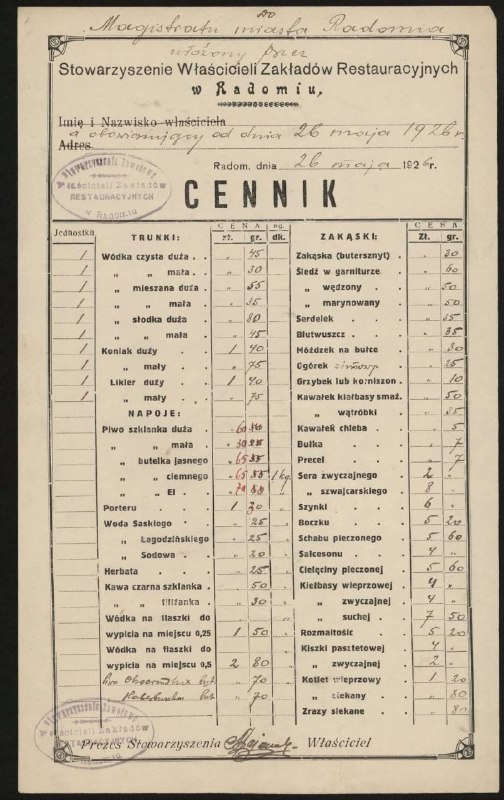 Do
Magistratu miasta Radomia
ułożony przez
Stowarzyszenie Właścicieli Zakładów Restauracyjnych
w Radomiu,
Imię i Nazwisko właściciela
a obowiązujący od dnia 26 maja 1926 r.
Adres
Radom, dnia 26 maja 1926 r.
Stowarzyszenie Zawodowe
Właścicieli Zakładów
RESTAURACYJNYCH
w Radomiu
CENNIK
Jednostka TRUNKI: CENA zł. gr. Kg. dk.
1 Wódka czysta duża . . „ 45
1 „ „ mała . . „ 30
1 „ mieszana duża . . „ 55
1 „ „ mała . „ 35
1 „ słodka duża . „ 80
1 „ „ mała . „ 45
1 Koniak duży . 1 40
1 „ mały . . „ 75
1 Likier duży . 1 40
1 „ mały . . „ 75
NAPOJE:
Piwo szklanka duża . „ 60
„ „ mała . „ 30 25
„ butelka jasnego „ 65 55
„ „ ciemnego „ 65 55 1 kg.
„ „ El . . „ 70
Porteru . . 1 30
Woda Saskiego . . „ 25
„ Łagodzińskiego „ 25
„ Sodowa . . „ 20
Herbata . . „ 25
Kawa czarna szklanka . „ 50
„ „ filiżanka . „ 30
Wódka na flaszki do
wypicia na miejscu 0,25 1 50
Wódka na flaszki do
wypicia na miejscu 0,5 2 80
„ 70
but „ 70
ZAKĄSKI: CENA Zł. gr.
Zakąska (butersznyt) . „ 30
Śledź w garniturze . „ 60
„ wędzony . . „ 50
„ marynowany . „ 50
Serdelek . . . „ 35
Blutwuszcz . . „ 35
Móżdzek na bułce . „ 30
Ogórek zimowy . „ 25
Grzybek lub korniszon . „ 10
Kawałek kiełbasy smaż. „ 50
„ wątróbki . „ 35
Kawałek chleba . . „ 5
Bułka . . „ 7
Precel . . „ 7
Sera zwyczajnego . 2 „
„ szwajcarskiego . 8 „
Szynki . . 6 „
Boczku . . 5 20
Schabu pieczonego . 5 60
Salcesonu . . 4 „
Cielęciny pieczonej . 5 60
Kiełbasy wieprzowej . 4 „
„ zwyczajnej . 4 „
„ suchej . . 7 50
Rozmaitośic . 5 20
Kiszki pasztetowej . 4 „
„ zwyczajnej . 2 „
Kotlet wieprzowy . 1 20
„ siekany . . „ 80
Zrazy siekane . „ 80
Stowarzyszenie Zawodowe
Właścicieli Zakładów
RESTAURACYJNYCH
w Radomiu
Prezes Stowarzyszenia Właściciel